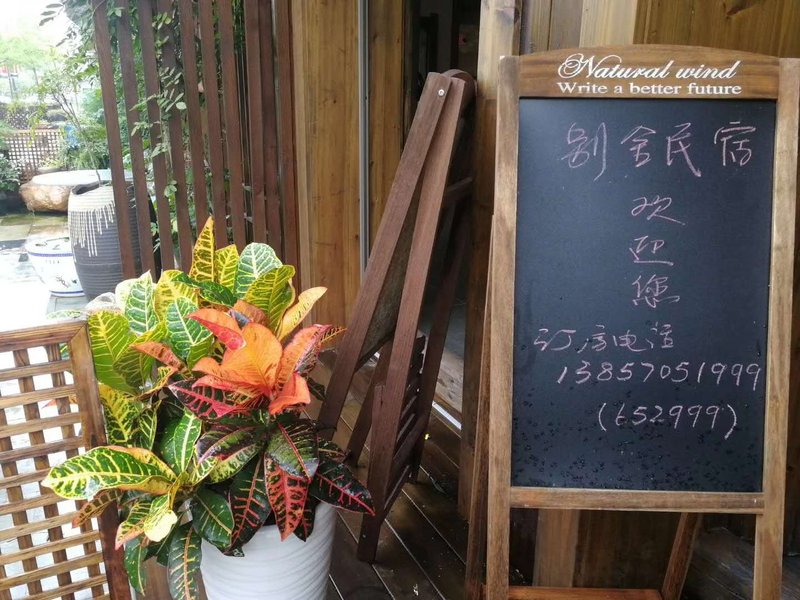 Natural wind
Write a better future
别舍民宿
欢
迎
您
订房电话
13857051999
(652999)